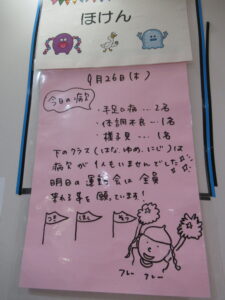 ほけん
9月26日(木)
今日の病欠
・手足口病…2名
・体調不良…1名
・様子見…1名
下のクラス(はな、ゆめ、にじ)は
病欠が1人もいませんでした
明日の運動会は全員
来れる事を願っています!
つき
ほし
フレー フレー